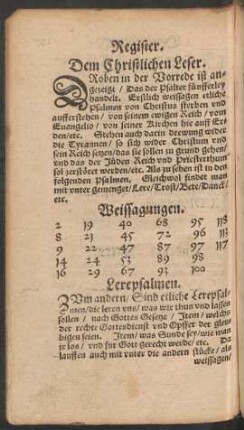 Register.
Dem Christlichen Leser.
DRoben in der Vorrede ist an-
gezeigt / Das der Psalter fünfferley
handelt. Erstlich weissagen etliche
Psalmen von Christus sterben vnd
aufferstehen / von seinem ewigen Reich / vom
Euangelio / von seiner Kirchen hie auff Er-
den / etc. Stehen auch darin drewung wider
die Tyrannen / so sich wider Christum vnd
sein Reich setzen / das sie sollen zu grund gehen /
vnd das der Jüden Reich vnd Priesterthum
sol zerstöret werden / etc. Als zu sehen ist in den
folgenden Psalmen. Gleichwol findet man
mit vnter gemenget / Lere / Trost / Bete / Danck /
etc.
Weissagungen.
2 19 40 68 95 118
8 21 45 72 96 113
9 22 47 87 97 117
14 24 53 89 98
16 29 67 93 100
Lerepsalmen.
ZVm andern / Sind etliche Lerepsal-
men / die leren vns / was wir thun vnd lassen
sollen / nach Gottes Gesetze / Item / welchs
der rechte Gottesdienst vnd Opffer der gleu-
bigen seien. Item / was Sunde sey / wie man
jr los / vnd für Gott gerecht werde / etc. Da
lauffen auch mit vnter die andern stücke / als
weissagen /